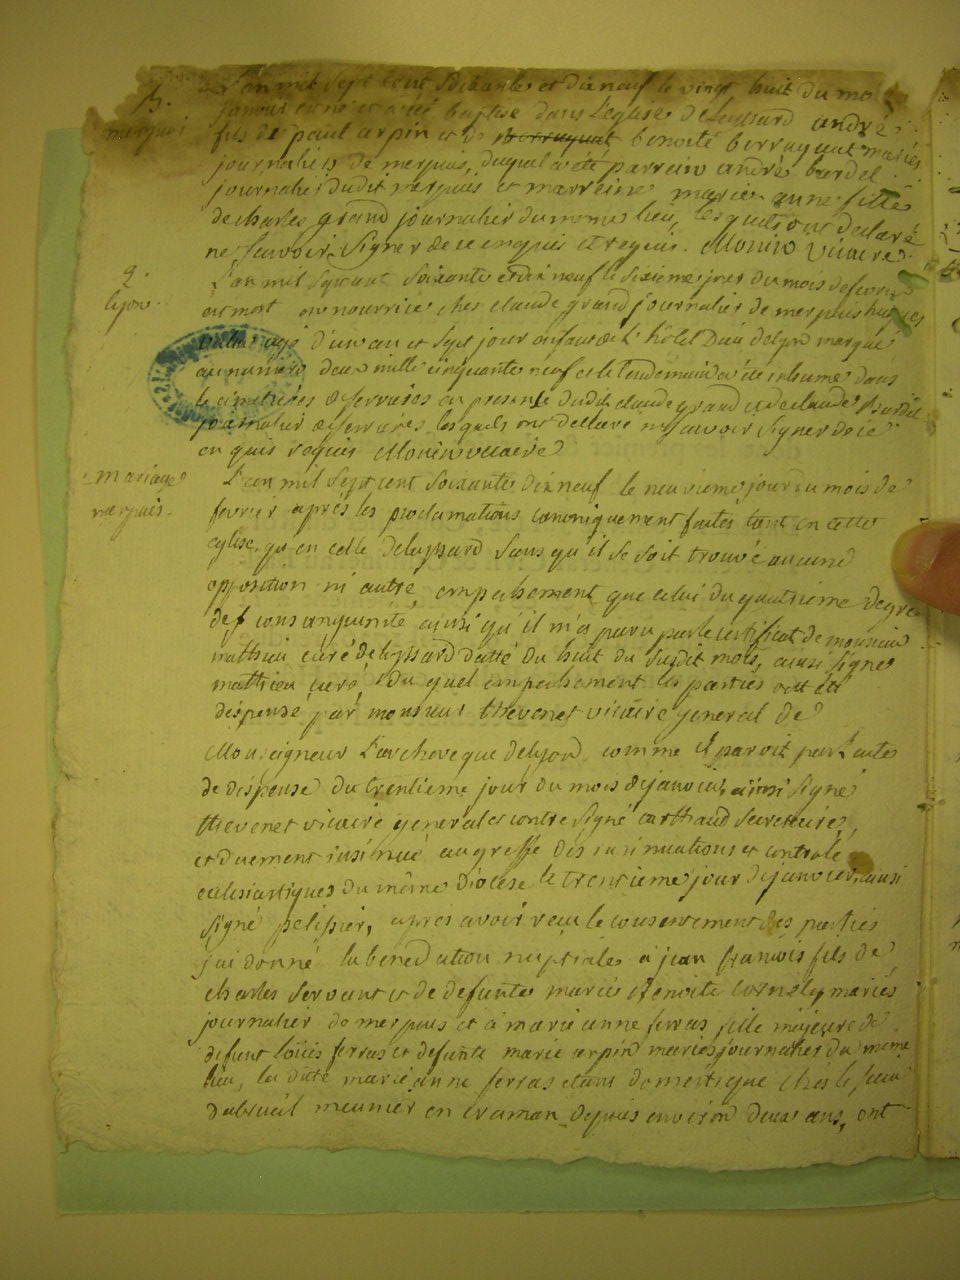 B.
merpuis
L'an mil sept cent soixante et dix neuf le vingt huit du mois
janvier est né et a été baptisé dans l'eglise de lussard andré
fils de paul arpin et de berruquat benoite berruyuat mariés
journaliers de merpuis, duquel a été parrein andré burdel
journalier dudit merpuis et marreine marie anne fille
de charles grand journalier du meme lieu, lesquels ont declaré
ne sçavoir signer de ce enquis et requis. Monin vicaire
2.
lyon
L'an mil sept cent soixante et dix neuf le sixieme jour du mois de fevrier
est mort en nourrice chez claude grand journalier de merpuis hugues
agé d'un an et sept jour enfant de l'hôtel Dieu de lyon marqué
au numero deux mille cinquante neuf et le lendemain a été inhumé dans
le cimetières de ferrières en presence dudit claude grand et de claude burdel
journalier de ferrières lesquels ont declaré ne sçavoir signer de ce
enquis requis Monin vicaire
mariage
merpuis.
L'an mil sept cent soixante dix neuf le neuvieme jour du mois de
fevrier après les proclamations canoniquement faites tant en cette
eglise, qu'en celle de lussard sans qu'il se soit trouvé aucune
opposition ni autre empechement que celui du quatrieme degré
de consanguinité, ainsi qu'il m'a paru par le certificat de monsieur
mathieu curé de lussard datté du huit du susdit mois, ainsi signé
mathieu curé, du quel empechement les parties ont été
dispensé par monsieur thevenet vicaire general de
Monseigneur l'archeveque de lyon, comme il paroit par l'acte
de dispense du trentieme jour du mois de janvier, ainsi signé
thevenet vicaire general et contre signé carthaud secretaire,
et duement insinué au greffe des insinuations et controle
eclesiastiques du même diocese le trentieme jour de janvier, ainsi
signé pelissier, après avoir reçu le consentement des parties
j'ai donné la benediction nuptiale à jean françois fils de
charles servant et de defunte marie benoite mariés
journalier de merpuis et à marie anne ferras fille majeure de
defunt loüis ferras et defunte marie arpin mariés journalier du meme
lieu, la dite marie anne ferras etant domestique chés le sieur
dubreuil meunier en craman depuis environ deux ans, ont